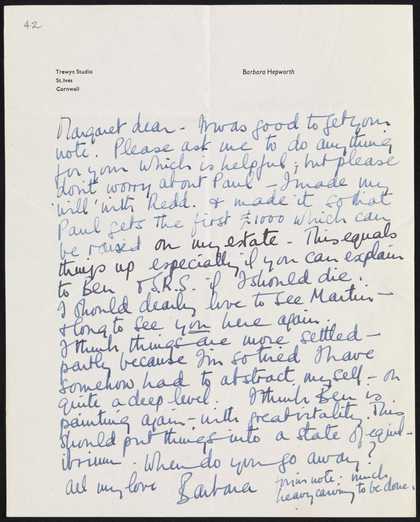 42
Trewyn Studio
St. Ives
Cornwall
Barbara Hepworth
Margaret dear - It was good to get your
note. Please ask me to do anything
for you which is helpful; but please
don't worry about Paul - I made my
'will' with Redd. & made it so that
Paul gets the first £1000 which can
be raised on my estate. This equals
things up especially if you can explain
to Ben & S.R.S. if I should die.
I should dearly love to see Martin -
& long to see you here again.
I think things are more settled -
partly because I'm so tired I have
somehow had to abstract myself - on
quite a deep level. I think Ben is
painting again - with great vitality. This
should put things into a state of equil-
ibrium. When do you go away?
all my love Barbara
note: much
heavy carving to be done.